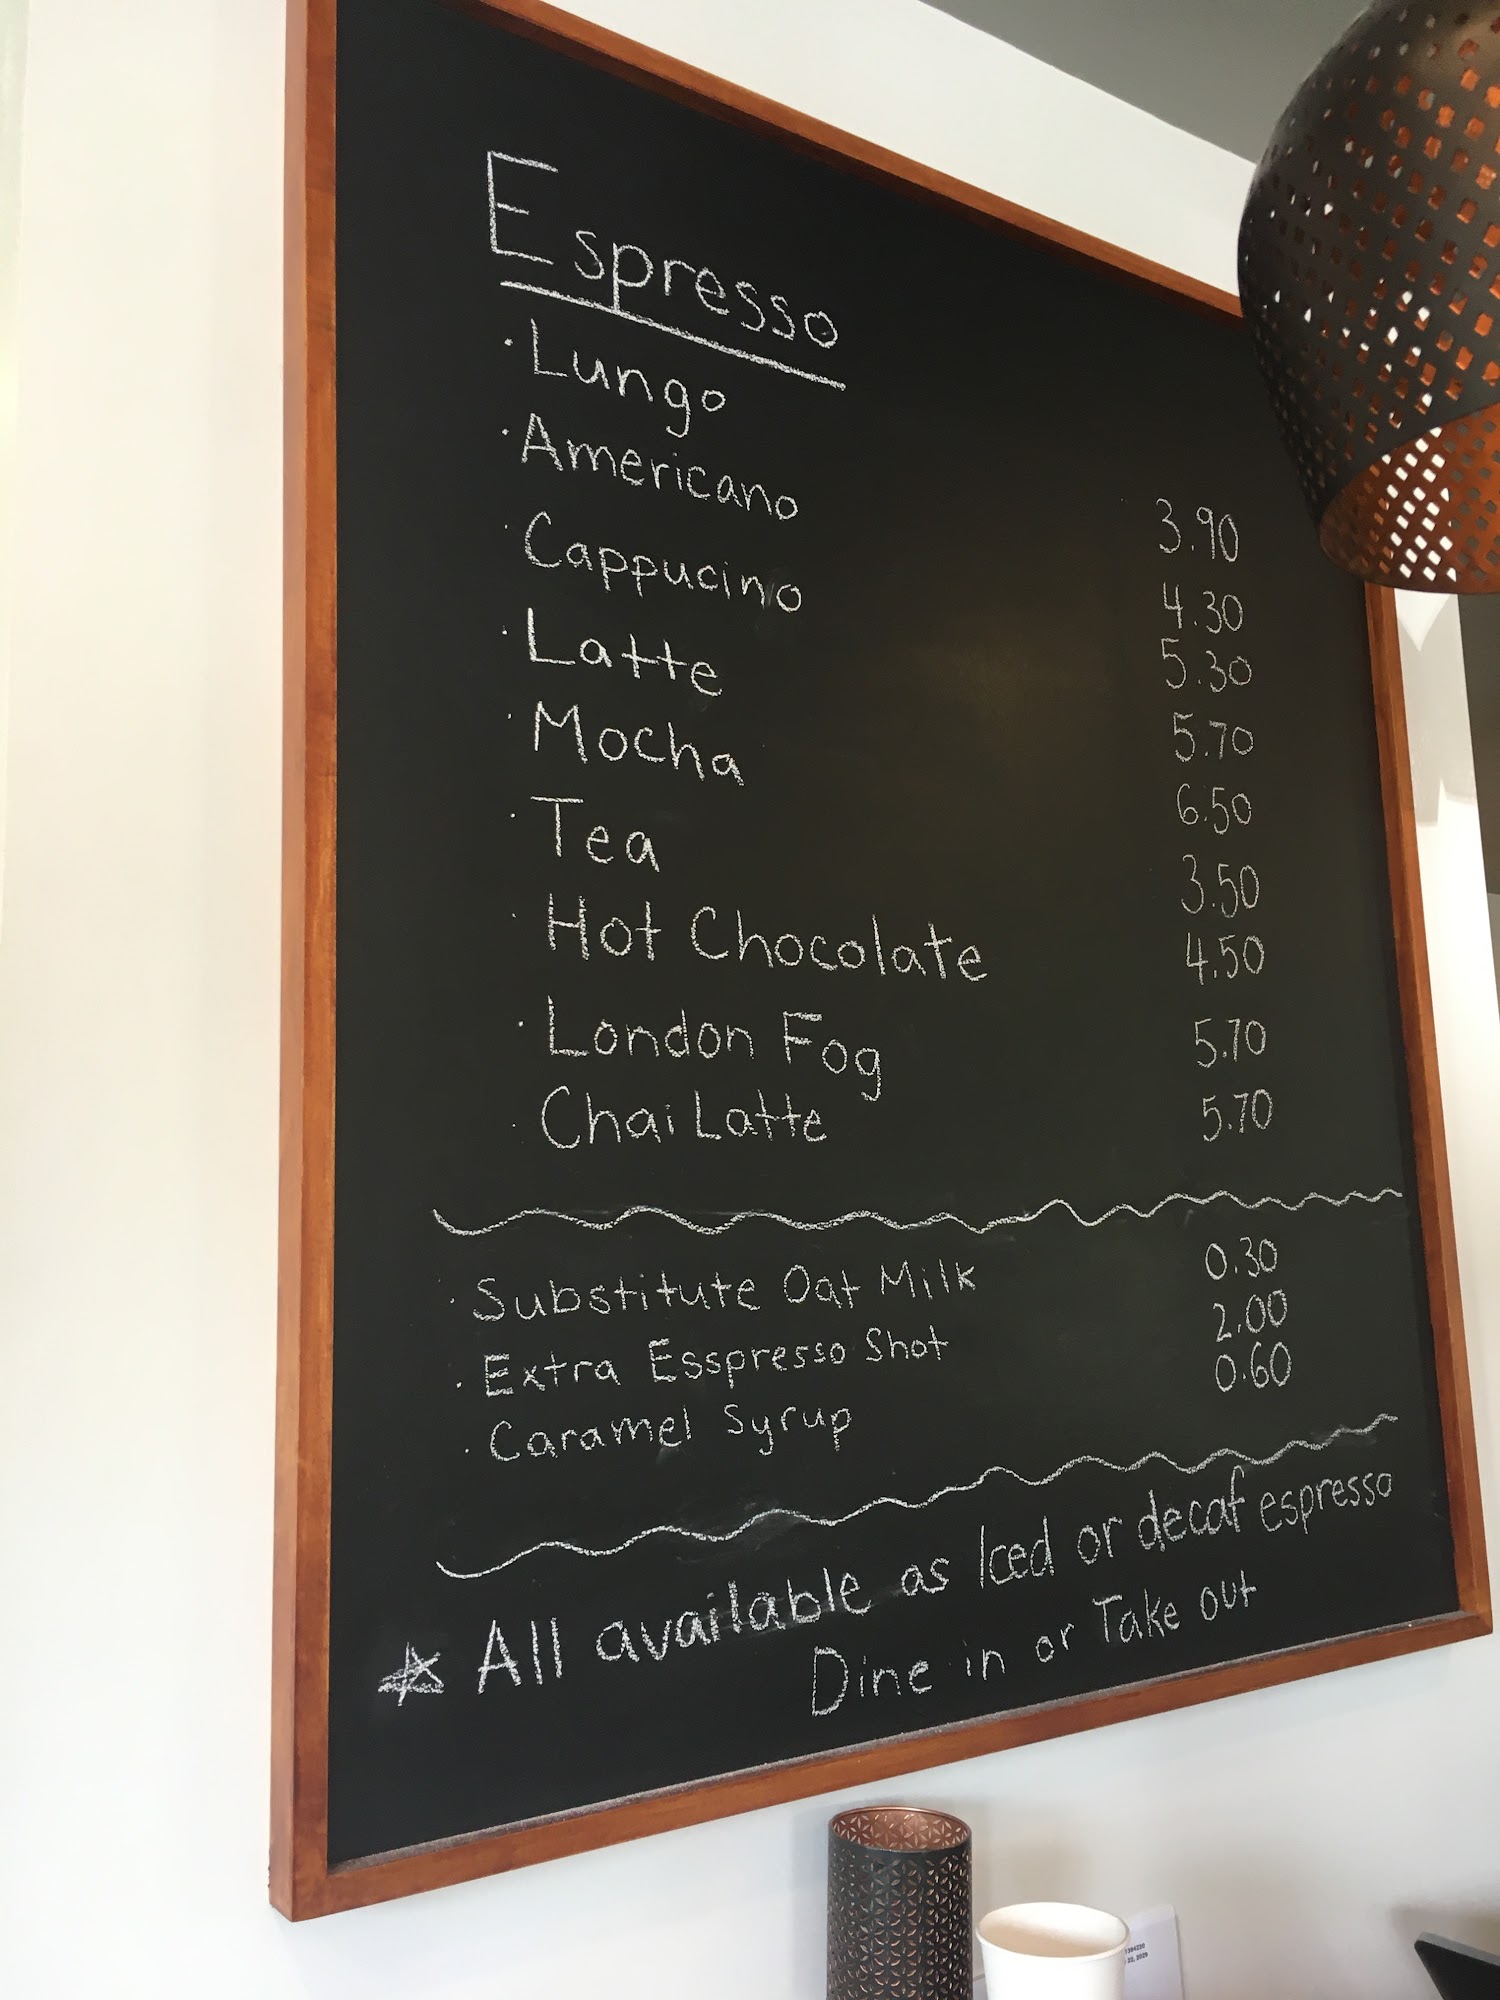 Espresso
· Lungo 3.90
· Americano 4.30
· Cappucino 5.30
· Latte 5.70
· Mocha 6.50
· Tea 3.50
· Hot Chocolate 4.50
· London Fog 5.70
· Chai Latte 5.70
· Substitute Oat Milk 0.30
· Extra Esspresso Shot 2.00
· Caramel Syrup 0.60
☆ All available as Iced or decaf espresso
Dine in or Take out